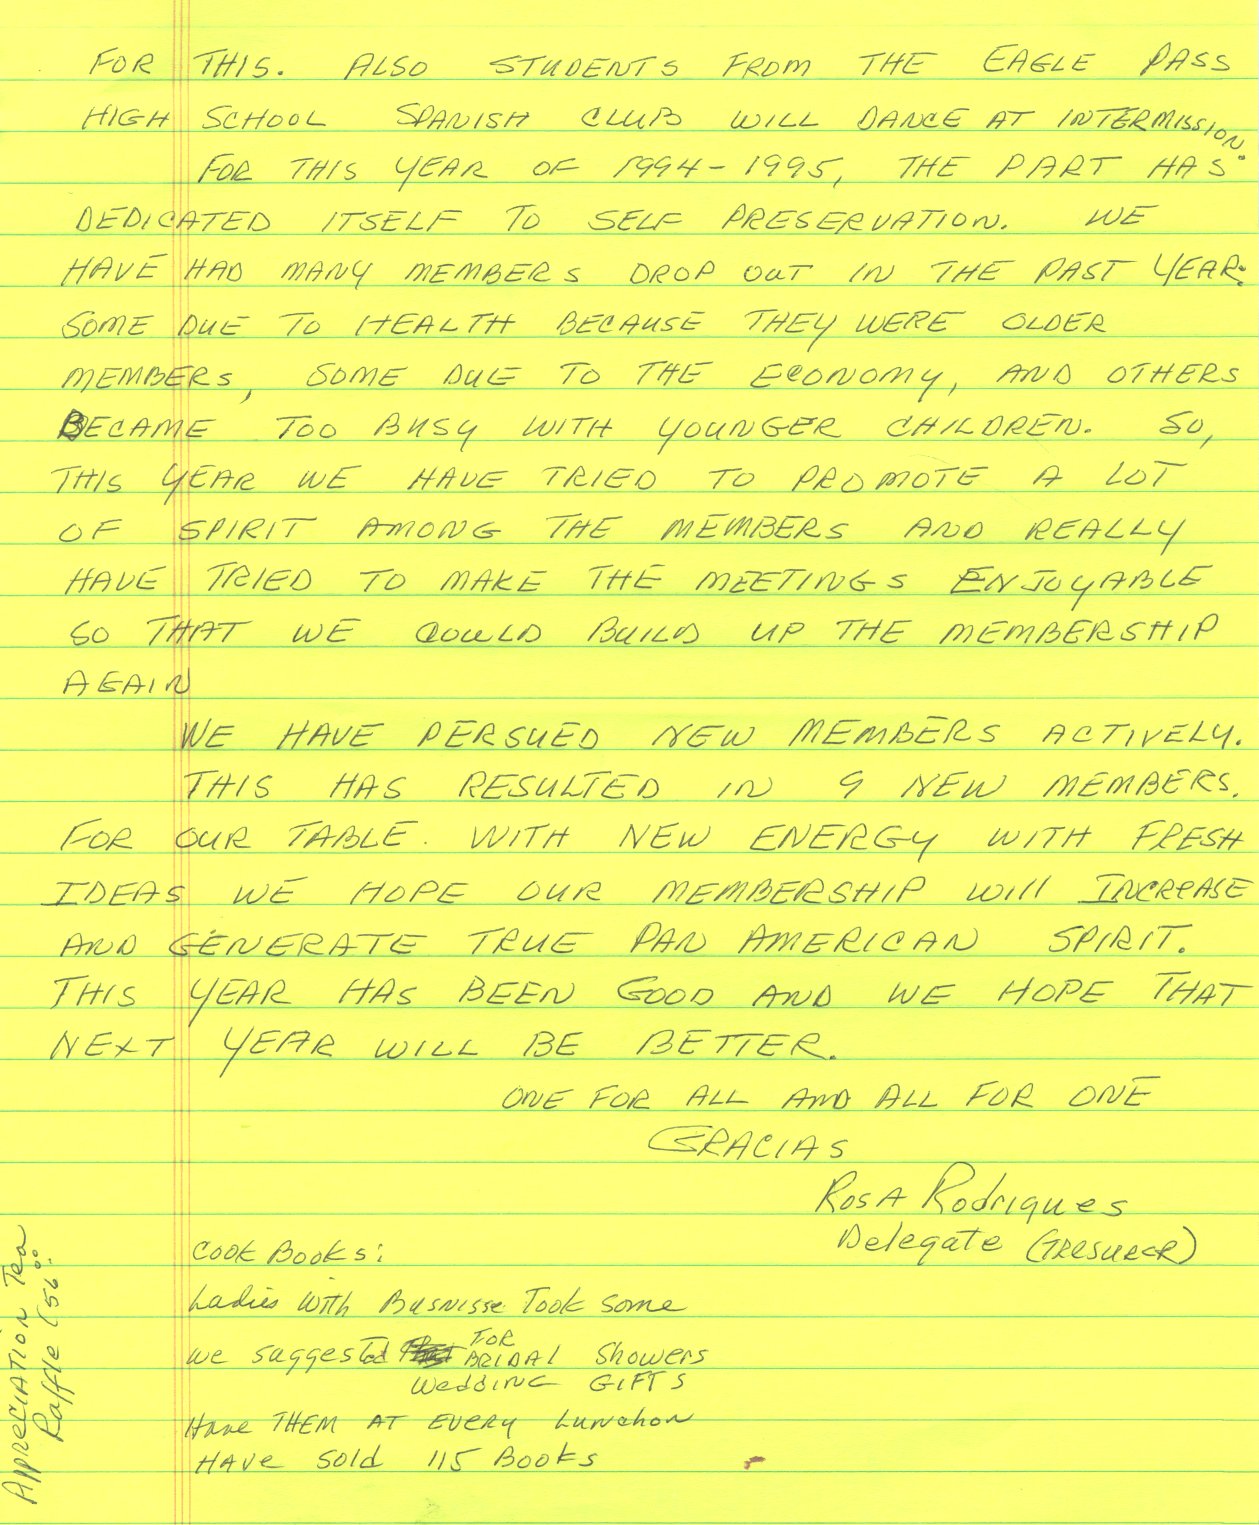 FOR THIS. ALSO STUDENTS FROM THE EAGLE PASS
HIGH SCHOOL SPANISH CLUB WILL DANCE AT INTERMISSION.
FOR THIS YEAR OF 1994-1995, THE PART HAS
DEDICATED ITSELF TO SELF PRESERVATION. WE
HAVE HAD MANY MEMBERS DROP OUT IN THE PAST YEAR:
SOME DUE TO HEALTH BECAUSE THEY WERE OLDER
MEMBERS, SOME DUE TO THE ECONOMY, AND OTHERS
BECAME TOO BUSY WITH YOUNGER CHILDREN. SO,
THIS YEAR WE HAVE TRIED TO PROMOTE A LOT
OF SPIRIT AMONG THE MEMBERS AND REALLY
HAVE TRIED TO MAKE THE MEETINGS ENJOYABLE
SO THAT WE COULD BUILD UP THE MEMBERSHIP
AGAIN
WE HAVE PERSUED NEW MEMBERS ACTIVELY.
THIS HAS RESULTED IN 9 NEW MEMBERS.
FOR OUR TABLE. WITH NEW ENERGY WITH FRESH
IDEAS WE HOPE OUR MEMBERSHIP WILL INCREASE
AND GENERATE TRUE PAN AMERICAN SPIRIT.
THIS YEAR HAS BEEN GOOD AND WE HOPE THAT
NEXT YEAR WILL BE BETTER.
ONE FOR ALL AND ALL FOR ONE
GRACIAS
ROSA Rodrigues
Delegate (TRESURER)
COOK BOOKS:
Ladies with Busnisse Took some
we suggested FOR BRIDAL Showers
Wedding GIFTS
Have THEM AT EVERY Lunchon
HAVE Sold 115 Books
Appreciation Tea
Raffle (56.00